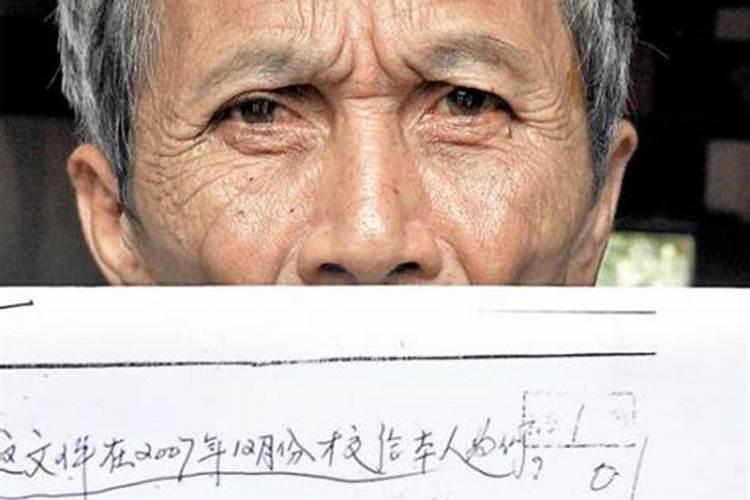 这文件在2007年12月份才交给本人为何?